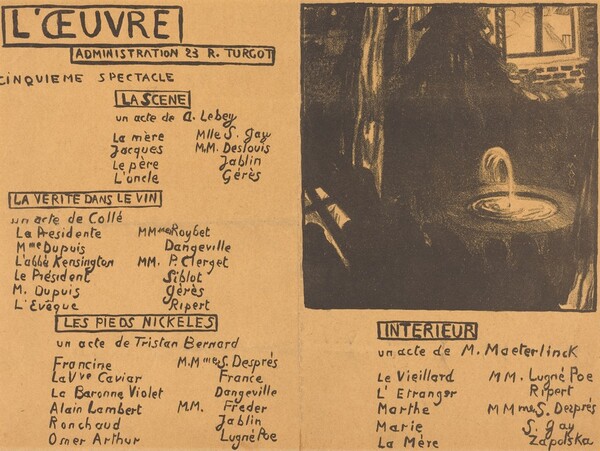 L'ŒUVRE
ADMINISTRATION 23 R. TURGOT
CINQUIEME SPECTACLE
LA SCENE
un acte de A. Lebey
La mère Mlle S. Gay
Jacques M.M. Deslouis
Le père Jablin
L'oncle Gérès
LA VERITE DANS LE VIN
un acte de Collé
La Presidente MMmes Roybet
Mme Dupuis Dangeville
L'abbé Kensington MM. P. Clerget
Le Président Siblot
M. Dupuis Gérès
L'Evêque Ripert
LES PIEDS NICKELES
un acte de Tristan Bernard
Francine M.Mmes S. Després
La Vve Caviar France
La Baronne Violet Dangeville
Alain Lambert MM. Freder
Ronchaud Jablin
Omer Arthur Lugné Poe
INTERIEUR
un acte de M. Maeterlinck
Le Vieillard MM. Lugné Poe
L'Etranger Ripert
Marthe MMmes S. Després
Marie S. Gay
La Mère Zapolska